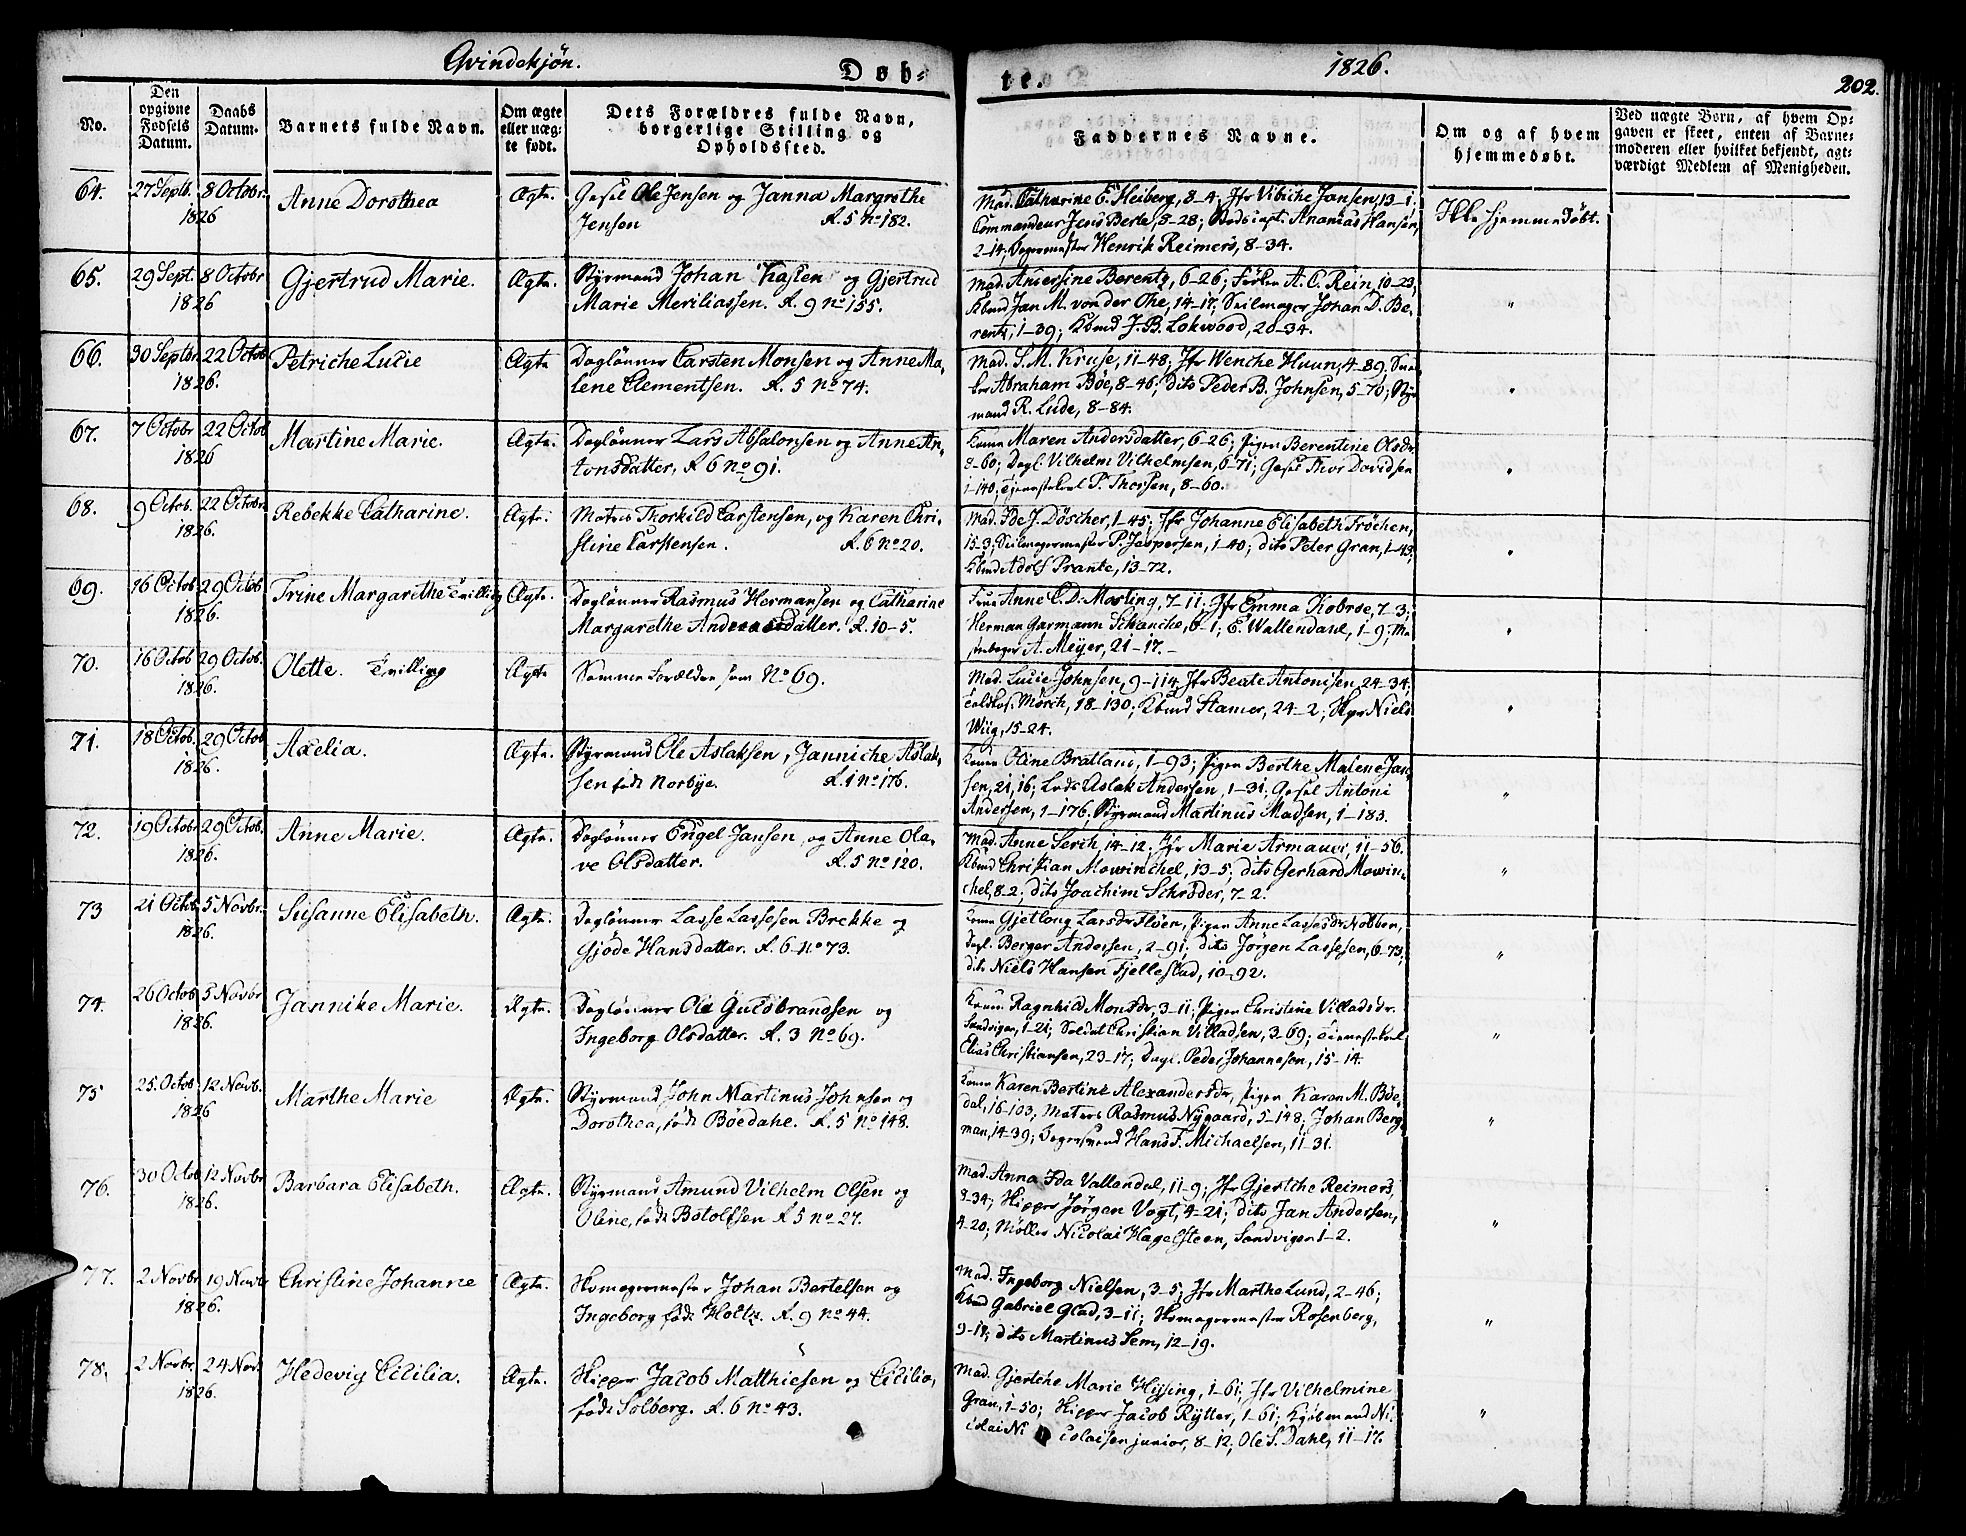 Qvindekjøn.
Døb-
te.
1826.
202.
No.
Den opgivne Fødsels Datum.
Daabs Datum.
Barnets fulde Navn.
Om ægte eller uæg-te født.
Dets Forældres fulde Navn, borgerlige Stilling og Opholdssted.
Faddernes Navne.
Om og af hvem hjemmedøbt.
Ved uægte Børn, af hvem Op-
gaven er skeet, enten af Barne-
moderen eller hvilket bekjendt, agt-
værdigt Medlem af Menigheden.
64. 27 Septb. 1826 8 Octobr. Anne Dorothea Ægte. Gesel Ole Jensen og Janna Margrethe
Jensen R. 5 No 182.
Mad. Catharine E. Heiberg, 8-4; Jfr Vibiche Jansen, 13-1.
Commandeur Jens Berle, 8-28; Ananias Hansen,
2-14; Henrik Reimers, 8-34.
Ikke hjemmedøbt.
65. 29 Sept. 1826 8 Octobr Gjertrud Marie. Ægte. Styrmand Johan Kasten og Gjertrud
Marie Meriliassen. R. 9 No 155.
Mad. Andersine Berentz, 6-26; Frøken A. C. Rein, 10-23,
Kbmd Jan M. von der Ohe, 14-17; Seilmager Johan D. Be-
rentz, 1-39; Kbmd J. B. Lokwood, 20-34.
"
66. 30 Septbr 1826. 22 Octob Petriche Lucie Ægte Daglønner Carsten Monsen og Anne Ma-
lene Clementsen. R. 5 No 74.
Mad. S. M. Kruse, 11-48; Jfr Wenche Huun, 4-89,
Abraham Bøe, 8-46; dito Peder B. Johnsen, 5-70; Styr
mand R. Lude, 8-84.
"
67. 7 Octobr 1826 22 Octob Martine Marie. Ægte. Daglønner Lars Absalonsen og Anne An-
tonsdatter, R. 6 No 91.
Kone Maren Andersdatter, 6-26; Pigen Berentine Olsdr
8-60; Dagl. Vilhelm Vilhelmsen, 6-71; Gesel Thor Davidsen
1-140; Tjenestekarl P. Thorsen, 8-60.
"
68. 9 Octob. 1826. 22 Octobr. Rebekke Catharine. Ægte. Matros Thorkild Carstensen, og Karen Chri-
stine Carstensen. R. 6 No 20.
Mad. Ide J. Döscher, 1-45; Jfr Johanne Elisabeth Fröchen,
15-3; Seilmagermester P. Jaspersen, 1-40; dito Peter Gran, 1-43,
Kbmd Adolf Prante, 13-72.
"
69. 16 Octob 1826. 29 Octob Trine Margarethe Tvilling Ægte. Daglønner Rasmus Hermansen og Catharine
Margarethe Andreasdatter. R. 10-5.
Frue Anne C. D. Morting, 7-11; Jfr Emma Kobroe, 7-3;
Herman Garmann Schanche, 6-1; E. Wallendahl, 1-9;
A. Meyer, 21-17.
"
70. 16 Octob 1826. 29 Octob. Olette. Tvilling Ægte Samme Forældre som No 69.
Mad. Lucie Johnsen, 9-114, Jfr Beate Antonisen, 24-34;
Mörch, 18-130; Kbmd Stamer, 24-2; Skpr Niels
Wiig, 15-24.
"
71. 18 Octob. 1826. 29 Octob Axelia. Ægte. Styrmand Ole Aslaksen, Janniche Aslak-
sen født Norbye. R. 1 No 176.
Kone Oline Bratland, 1-93; Pigen Berthe Malene Jan-
sen, 21, 16; Lods Aslak Andersen, 1-31; Gesel Antoni
Andersen, 1-176, Styrmand Martinus Madsen, 1-183.
"
72. 19 Octobr 1826. 29 Octob. Anne Marie. Ægte. Daglønner Engel Jansen, og Anne Ola-
ve Olsdatter. R. 5 No 120.
Mad. Anne Serch, 14-12. Jfr Marie Armauer, 11-56.
Kbmd Christian Mowinchel, 13-5; dito Gerhard Mowin-
chel, 8-2; dito Joachim Schrøder, 7-2.
"
73 21 Octob 1826. 5 Novbr. Susanne Elisabeth. Ægte. Daglønner Lasse Lassesen Brekke og
Gjøde Hansdatter. R. 6 No 73.
Kone Gjetlong Larsdr Fløen, Pigen Anne Lassesdr Nobben,
Dagl. Berger Andersen, 2-91; dito Jørgen Lassesen, 6-73,
dito Niels Hansen Fjellestad, 10-92.
"
74. 26 Octob 1826. 5 Novbr Jannike Marie. Ægte. Dagløinner Ole Guldbrandsen og
Ingeborg Olsdatter. R. 3 No 69.
Kone Ragnhild Monsdr, 3-11; Pigen Christine Villadsdr.
Sandvigen, 1-21; Soldat Christian Villadsen, 3-69; Tjenestekarl
Elias Christiansen, 23-17; Dagl. Peder Johannesen, 15-14
"
75 25. Octob 1826 12 Novb. Marthe Marie Ægte. Styrmand John Martinus Johnsen og
Dorothea, født Bøedahl. R. 5 No 148.
Kone Karen Bertine Alexandersdr, Pigen Karen M. Bøe-
dal, 16-103; Matros Rasmus Nygaard, 5-148, Johan Berg-
man, 14-39; Hans F. Michaelsen, 11-31.
"
76. 30 Octob 1826. 12 Novbr Barbara Elisabeth. Ægte. Styrmand Amund Vilhelm Olsen og
Oline, født Botolfsen R. 5 No 27.
Mad. Anna Ida Vallendal, 11-9; Jfr Gjertche Reimers,
8-34; Skipper Jørgen Vogt, 4-21; dito Jan Andersen,
4-20, Møller Nicolai Hagelsteen, Sandvigen 1-2.
"
77. 2 Novbr 1826. 19 Novbr Christine Johanne Ægte. Skomagermester Johan Bertelsen og
Ingeborg født Holtz. R. 9 No 44.
Mad. Ingeborg Nielsen, 3-5; Jfr Marthe Lund, 2-46;
Kbmd Gabriel Glad, 3-11; Skomagermester Rosenberg,
9-18; dito Martinus Sem, 12-19.
"
78. 2 Novbr. 1826. 24 Nov. Hedevig Cicilia. Ægte. Skipper Jacob Matthiesen og Cicilia,
født Solberg. R. 6 No 43.
Mad. Gjertche Marie Hissing, 1-61; Jfr Vilhelmine
Gran, 1-50; Skipper Jacob Rytter, 1-61; Kjøbmand Ni-
colai Nicolaisen junior, 8-12, Ole S. Dahl, 11-17.
"